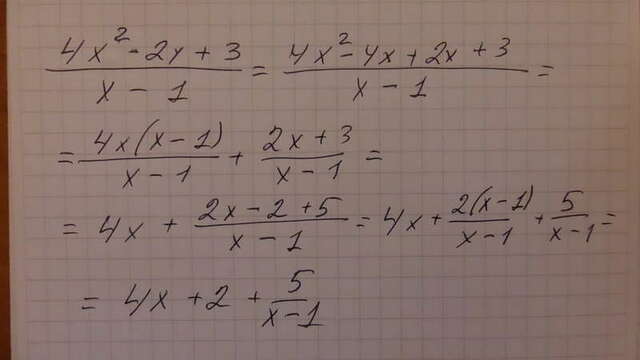 (4x² - 2x + 3)/(x - 1) = (4x² - 4x + 2x + 3)/(x - 1) =
= 4x(x - 1)/(x - 1) + (2x + 3)/(x - 1) =
= 4x + (2x - 2 + 5)/(x - 1) = 4x + 2(x - 1)/(x - 1) + 5/(x - 1) =
= 4x + 2 + 5/(x - 1)